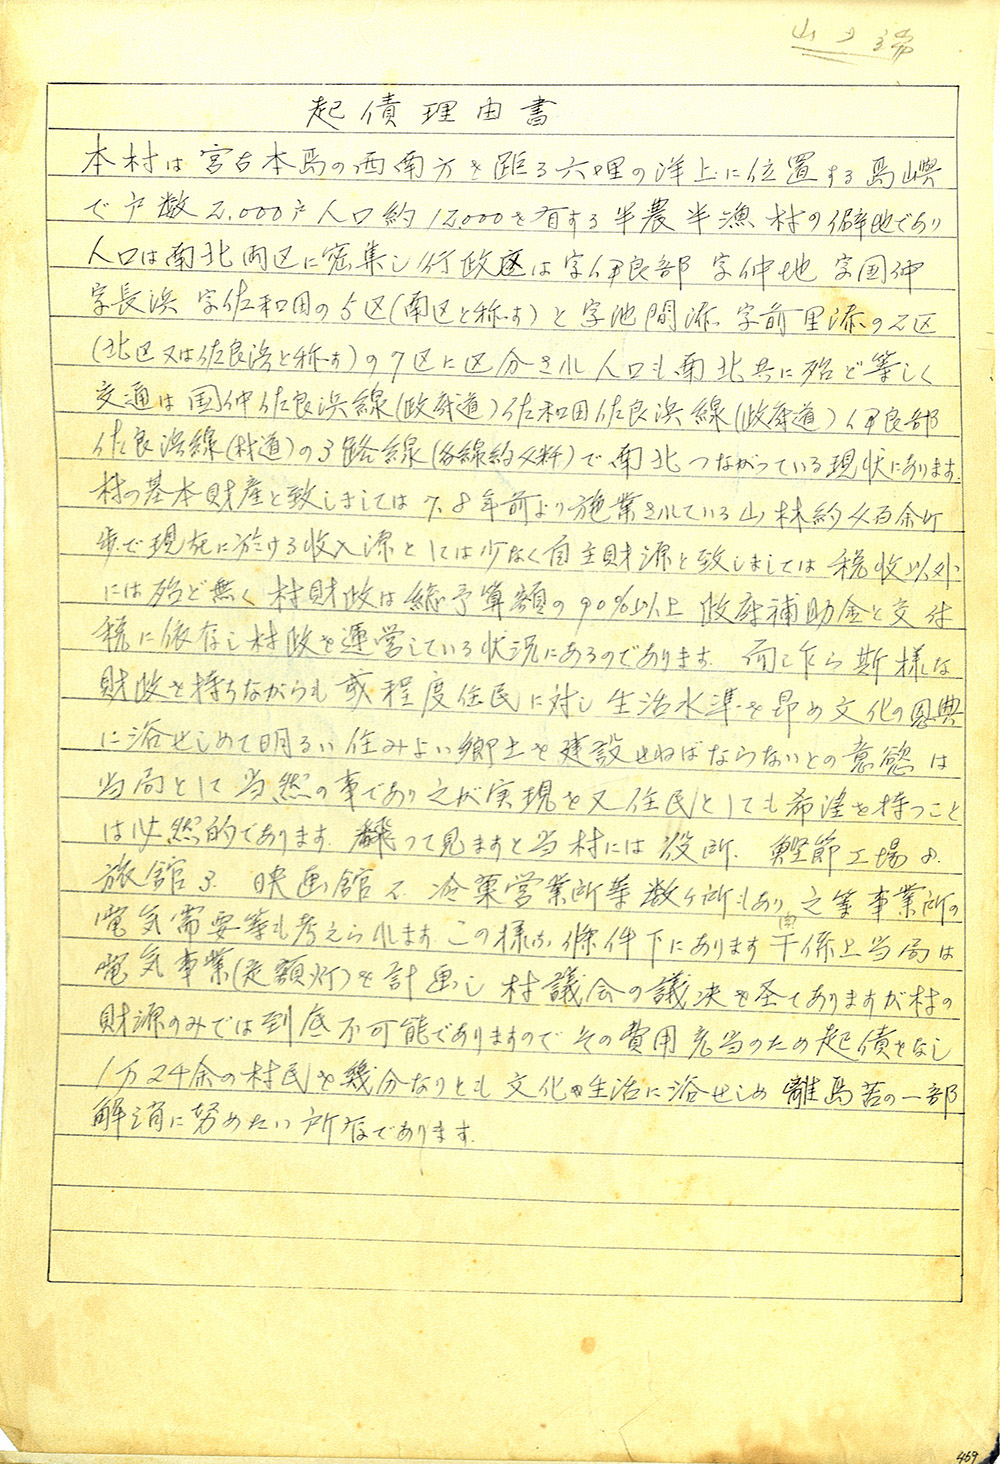 山ノ端
起債理由書
本村は宮古本島の西南方を距る六哩の洋上に位置する島嶼
で戸数2,000戸人口約12000を有する半農半漁村の僻地であり
人口は南北両区に密集し行政区は字伊良部 字仲地 字国仲
字長浜 字佐和田の5区(南区と称す)と字池間添 字前里添の2区
(北区又は佐良浜と称す)の7区に区分され人口も南北共に殆ど等しく
交通は国仲佐良浜線(政府道)佐和田佐良浜線(政府道)伊良部
佐良浜線(村道)の3路線(各線約4粁)で南北つながっている現状にあります.
村の基本財産と致しましては7.8年前より施業されている山林約4百余町
歩で現在に於ける収入源としては少なく自主財源と致しましては税收以外
には殆ど無く村財政は総予算額の90%以上政府補助金と交付
税に依存し村政を運営している状況にあるのであります. 而し乍ら斯様な
財政を持ちながらも或程度住民に対し生活水準を昂め文化の恩典
に浴せしめて明るい住みよい郷土を建設せねばならないとの意慾は
当局として当然の事であり之が実現を又住民としても希望を持つこと
は必然的であります. 飜って見ますと当村には役所. 鰹節工場
旅館3. 映画館2. 冷菓営業所等数ヶ所もあり之等事業所の
電気需要等も考えられます. この様な條件下にあります関係上当局は
電気事業(定額灯)を計画し村議会の議決を圣てありますが村の
財源のみでは到底不可能でありますのでその費用充当のため起債をなし
1万2千余の村民を幾分なりとも文化的生活に浴せしめ離島苦の一部
解消に努めたい所存であります.
469